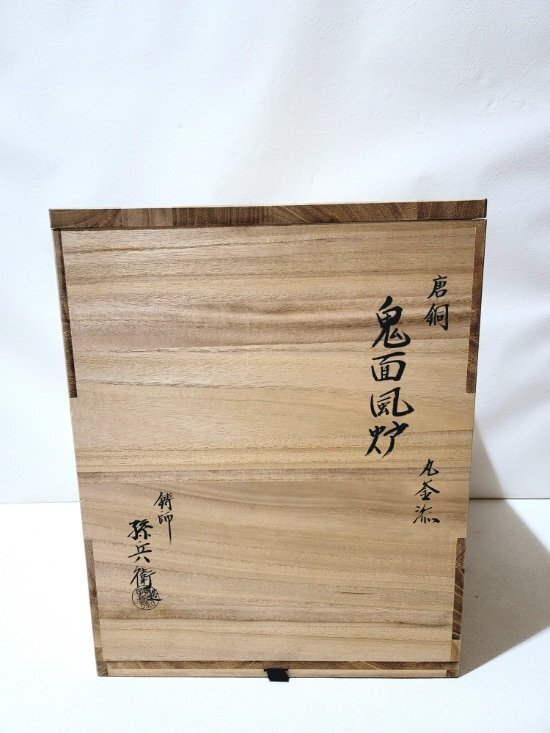 唐銅
鬼面風炉
丸釜添
鋳師
孫兵衛